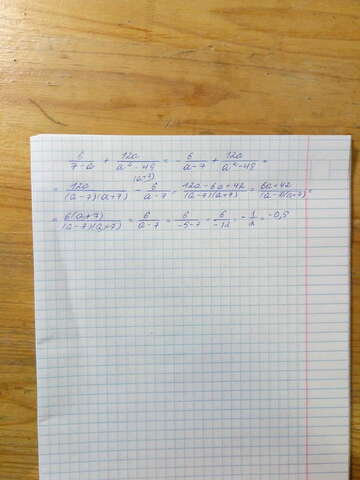 6/(7-a) + 12a/(a²-49) = -6/(a-7) + 12a/(a²-49) =
= 12a/((a-7)(a+7)) - 6/(a-7) = (12a-6a+42)/((a-7)(a+7)) = (6a+42)/((a-7)(a+7)) =
= 6(a+7)/((a-7)(a+7)) = 6/(a-7) = 6/(-5-7) = 6/(-12) = -1/2 = -0,5